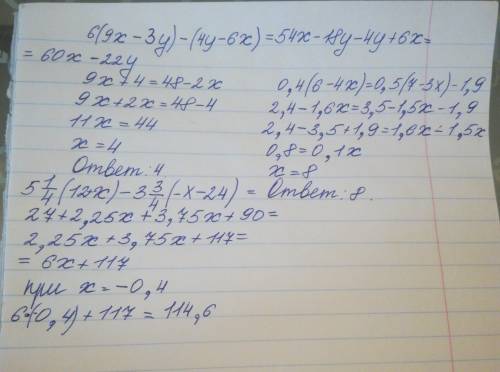 6(9x-3y)-(4y-6x)=54x-18y-4y+6x=
=60x-22y
9x+4=48-2x
9x+2x=48-4
11x=44
x=4
Ответ: 4
0,4(6-4x)=0,5(7-3x)-1,9
2,4-1,6x=3,5-1,5x-1,9
2,4-3,5+1,9=1,6x-1,5x
0,8=0,1x
x=8
Ответ: 8.
5 1/4 (12+x)-3 3/4 (-x-24)=
27+2,25x+3,75x+90=
2,25x+3,75x+117=
=6x+117
при x=-0,4
6·(-0,4)+117=114,6